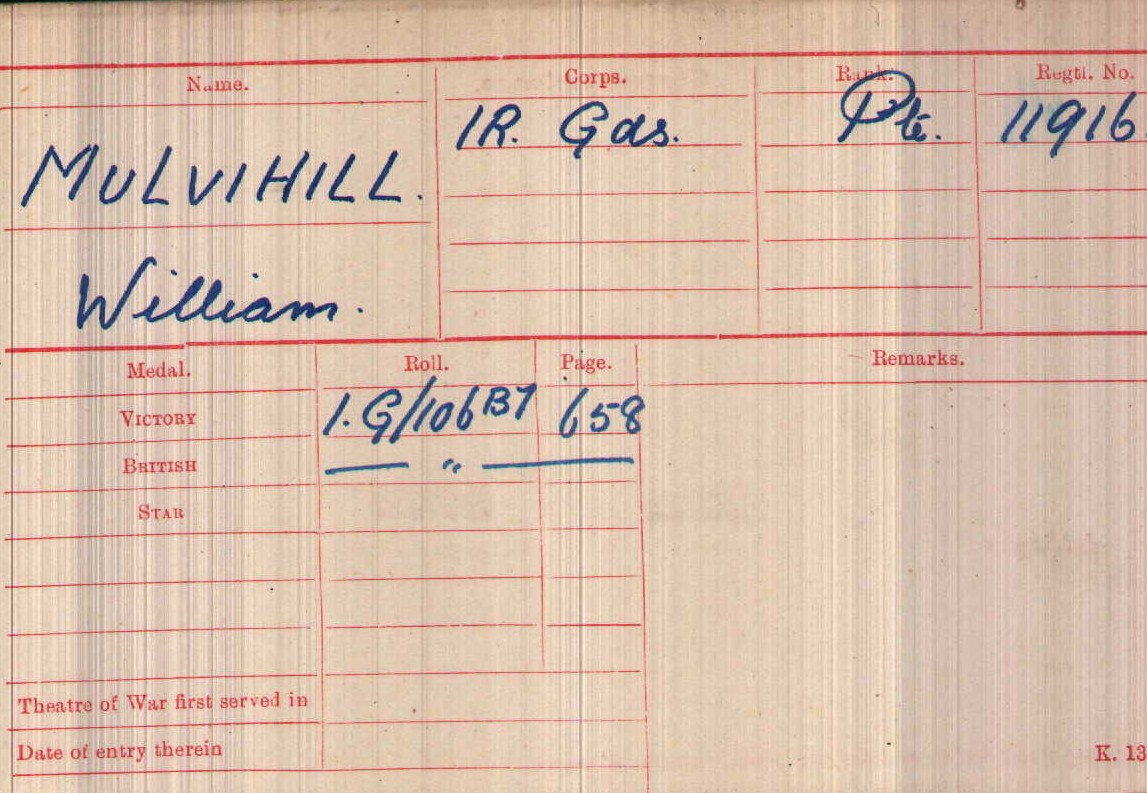 Name. Corps. Rank. Regtl. No.
MULVIHILL. IR. Gds. Pte. 11916
William.
Medal. Roll. Page. Remarks.
VICTORY I.G/106B7 658
BRITISH — " —
STAR
Theatre of War first served in
Date of entry therein
K. 13